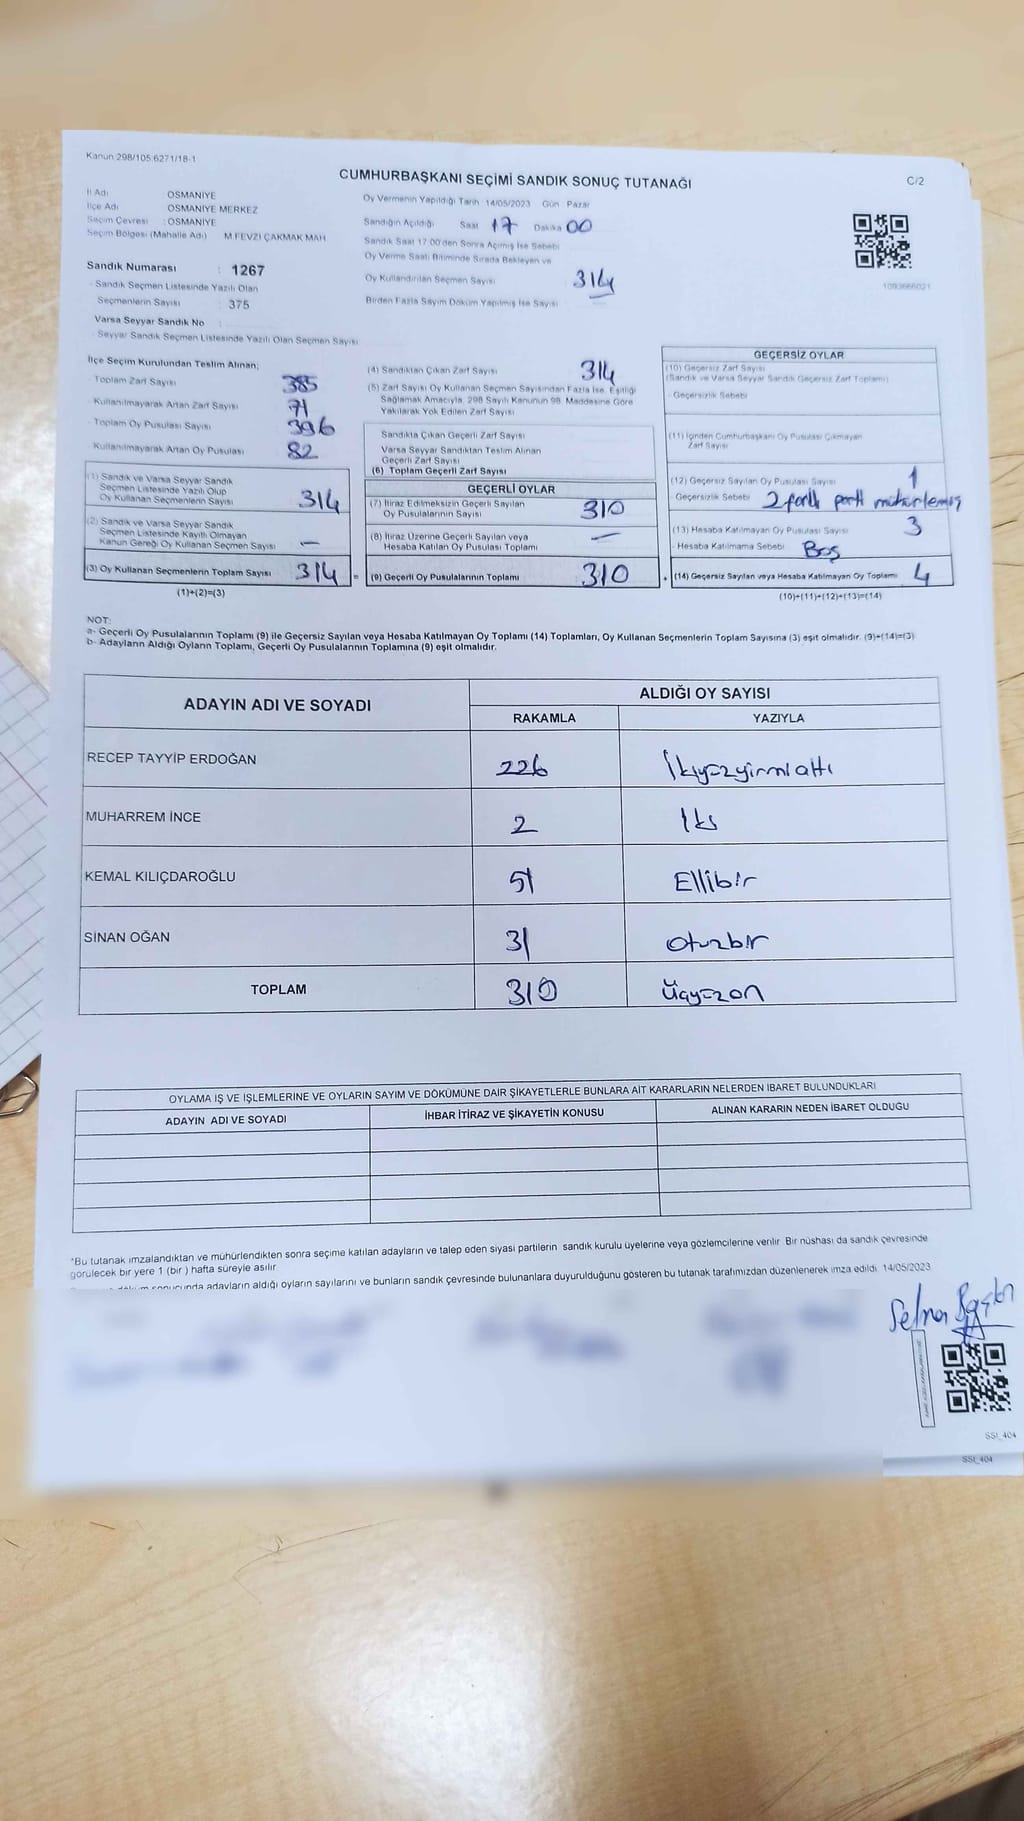 Kanun 298/105.6271/18-1
CUMHURBAŞKANI SEÇİMİ SANDIK SONUÇ TUTANAĞI
C/2
İl Adı OSMANİYE
İlçe Adı OSMANİYE MERKEZ
Seçim Çevresi : OSMANİYE
Seçim Bölgesi (Mahalle Adı) M.FEVZİ ÇAKMAK MAH
Sandık Numarası : 1267
Sandık Seçmen Listesinde Yazılı Olan
Seçmenlerin Sayısı : 375
Varsa Seyyar Sandık No :
Seyyar Sandık Seçmen Listesinde Yazılı Olan Seçmen Sayısı
Oy Vermenin Yapıldığı Tarih 14/05/2023 Gün Pazar
Sandığın Açıldığı Saat 17 Dakika 00
Sandık Saat 17.00'den Sonra Açımış İse Sebebi
Oy Verme Saati Bitiminde Sırada Bekleyen ve
Oy Kullandırılan Seçmen Sayısı 314
Birden Fazla Sayım Döküm Yapılmış İse Sayısı
1093666021
İlçe Seçim Kurulundan Teslim Alınan;
Toplam Zarf Sayısı 385
Kullanılmayarak Artan Zarf Sayısı 71
Toplam Oy Pusulası Sayısı 396
Kullanılmayarak Artan Oy Pusulası 82
(1) Sandık ve Varsa Seyyar Sandık
Seçmen Listesinde Yazılı Olup
Oy Kullanan Seçmenlerin Sayısı 314
(2) Sandık ve Varsa Seyyar Sandık
Seçmen Listesinde Kayıtlı Olmayan
Kanun Gereği Oy Kullanan Seçmen Sayısı —
(3) Oy Kullanan Seçmenlerin Toplam Sayısı 314 =
(1)+(2)=(3)
(4) Sandıktan Çıkan Zarf Sayısı 314
(5) Zarf Sayısı Oy Kullanan Seçmen Sayısından Fazla İse, Eşitliği
Sağlamak Amacıyla, 298 Sayılı Kanunun 98. Maddesine Göre
Yakılarak Yok Edilen Zarf Sayısı
Sandıkta Çıkan Geçerli Zarf Sayısı
Varsa Seyyar Sandıktan Teslim Alınan
Geçerli Zarf Sayısı
(6) Toplam Geçerli Zarf Sayısı
GEÇERLİ OYLAR
(7) İtiraz Edilmeksizin Geçerli Sayılan
Oy Pusulalarının Sayısı 310
(8) İtiraz Üzerine Geçerli Sayılan veya
Hesaba Katılan Oy Pusulası Toplamı —
(9) Geçerli Oy Pusulalarının Toplamı 310 +
GEÇERSİZ OYLAR
(10) Geçersiz Zarf Sayısı
(Sandık ve Varsa Seyyar Sandık Geçersiz Zarf Toplamı)
- Geçersizlik Sebebi
(11) İçinden Cumhurbaşkanı Oy Pusulası Çıkmayan
Zarf Sayısı
(12) Geçersiz Sayılan Oy Pusulası Sayısı 1
- Geçersizlik Sebebi 2 farklı parti mühürlemiş
(13) Hesaba Katılmayan Oy Pusulası Sayısı 3
- Hesaba Katılmama Sebebi Boş
(14) Geçersiz Sayılan veya Hesaba Katılmayan Oy Toplamı 4
(10)+(11)+(12)+(13)=(14)
NOT:
a- Geçerli Oy Pusulalarının Toplamı (9) ile Geçersiz Sayılan veya Hesaba Katılmayan Oy Toplamı (14) Toplamları, Oy Kullanan Seçmenlerin Toplam Sayısına (3) eşit olmalıdır. (9)+(14)=(3)
b- Adayların Aldığı Oyların Toplamı, Geçerli Oy Pusulalarının Toplamına (9) eşit olmalıdır.
ADAYIN ADI VE SOYADI ALDIĞI OY SAYISI
RAKAMLA YAZIYLA
RECEP TAYYİP ERDOĞAN 226 İkiyüzyirmialtı
MUHARREM İNCE 2 İki
KEMAL KILIÇDAROĞLU 51 Ellibir
SİNAN OĞAN 31 otuzbir
TOPLAM 310 üçyüzon
OYLAMA İŞ VE İŞLEMLERİNE VE OYLARIN SAYIM VE DÖKÜMÜNE DAİR ŞİKAYETLERLE BUNLARA AİT KARARLARIN NELERDEN İBARET BULUNDUKLARI
ADAYIN ADI VE SOYADI İHBAR İTİRAZ VE ŞİKAYETİN KONUSU ALINAN KARARIN NEDEN İBARET OLDUĞU
*Bu tutanak imzalandıktan ve mühürlendikten sonra seçime katılan adayların ve talep eden siyasi partilerin sandık kurulu üyelerine veya gözlemcilerine verilir. Bir nüshası da sandık çevresinde
görülecek bir yere 1 (bir) hafta süreyle asılır.
sonucunda adayların aldığı oyların sayılarını ve bunların sandık çevresinde bulunanlara duyurulduğunu gösteren bu tutanak tarafımızdan düzenlenerek imza edildi. 14/05/2023
SSI_404
SSI_404